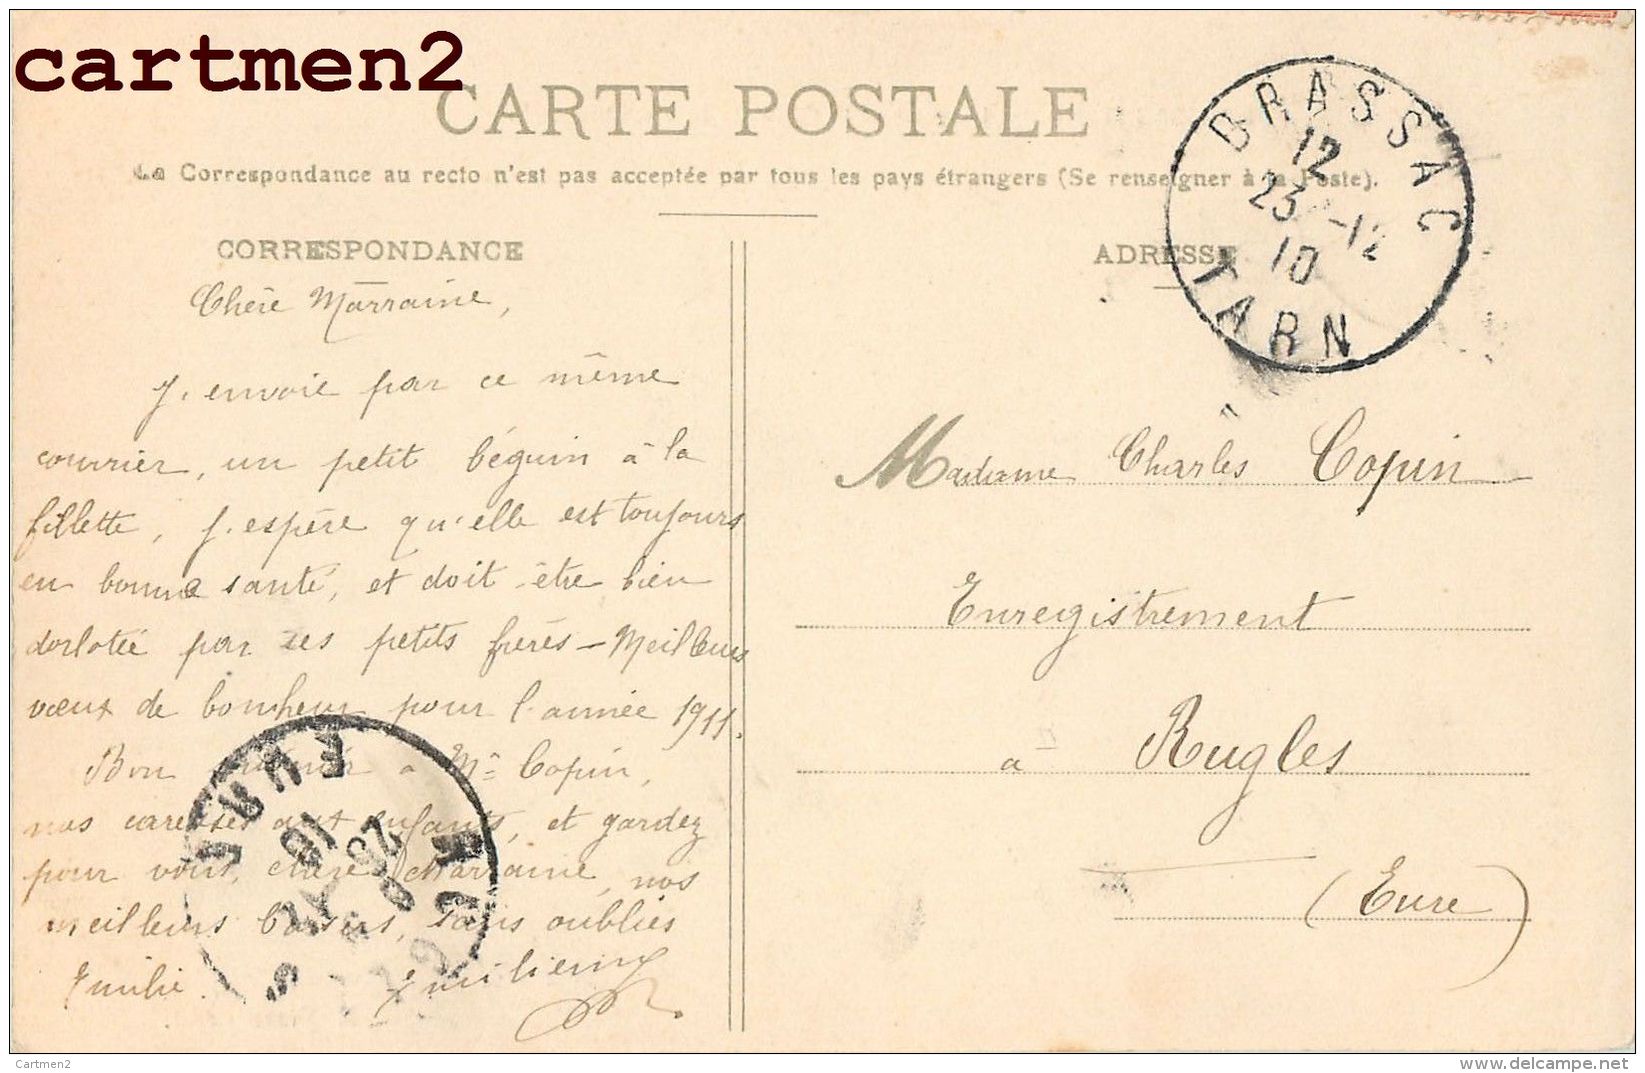 cartmen2
CARTE POSTALE
La Correspondance au recto n'est pas acceptée par tous les pays étrangers (Se renseigner à la Poste).
CORRESPONDANCE
Chère Marraine,
J'envoie par ce même
courrier, un petit béguin à la
fillette, j'espère qu'elle est toujours
en bonne santé, et doit être bien
dorlotée par ses petits frères – Meilleurs
vœux de bonheur pour l'année 1911.
Bon à Mr Copin,
nos caresses aux enfants, et gardez
pour vous, chère Marraine, nos
meilleurs baisers, sans oublier
Emilie. Emilienne
ADRESSE
Madame Charles Copin
Enregistrement
à Rugles
(Eure)
BRASSAC
12
23 -12
10
TARN
EURE
Cartmen2
http://www.delcampe.net